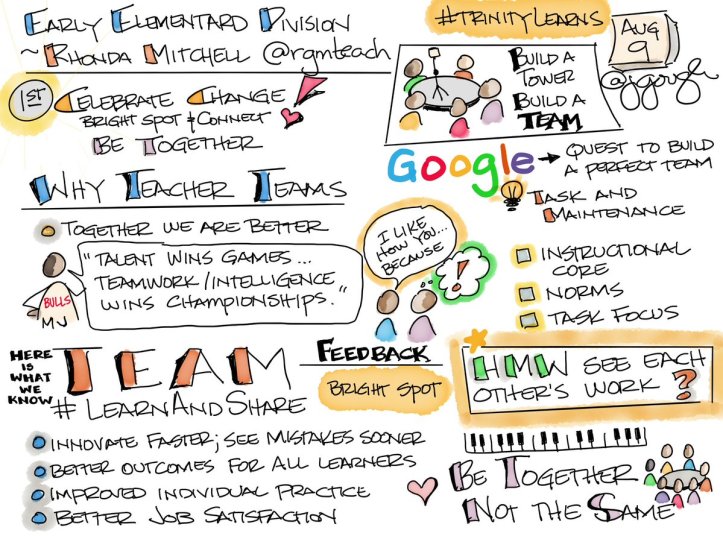 EARLY ELEMENTARD DIVISION
~ RHONDA MITCHELL @rgmteach
1ST
CELEBRATE CHANGE
BRIGHT SPOT & CONNECT
BE TOGETHER
#TRINITYLEARNS
AUG
9
@jgough
BUILD A
TOWER
BUILD A
TEAM
Google → QUEST TO BUILD
A PERFECT TEAM
TASK AND
MAINTENANCE
INSTRUCTIONAL
CORE
NORMS
TASK FOCUS
WHY TEACHER TEAMS
TOGETHER WE ARE BETTER
"TALENT WINS GAMES...
TEAMWORK/INTELLIGENCE
WINS CHAMPIONSHIPS."
BULLS
MJ
I LIKE
HOW YOU...
BECAUSE
!
FEEDBACK
BRIGHT SPOT
HERE
IS
WHAT
WE
KNOW
TEAM
# LEARNANDSHARE
INNOVATE FASTER; SEE MISTAKES SOONER
BETTER OUTCOMES FOR ALL LEARNERS
IMPROVED INDIVIDUAL PRACTICE
BETTER JOB SATISFACTION
HMW SEE EACH
OTHER'S WORK ?
BE TOGETHER
NOT THE SAME